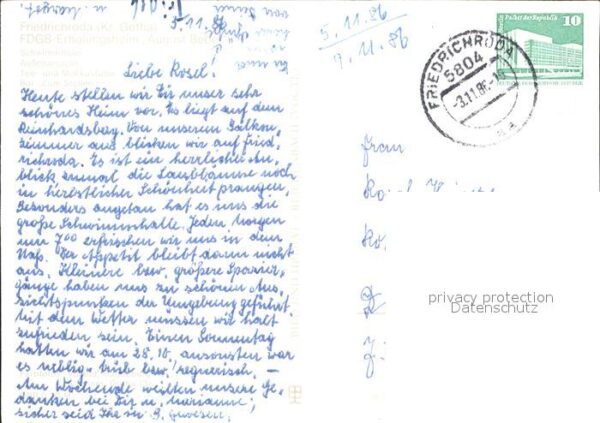 5.11.86
5.11.86
9.11.86
Friedrichroda (Kr. Gotha)
FDGB-Erholungsheim "August Bebel"
Liebe Rosel!
Heute stellen wir Dir unser sehr
schönes Heim vor. Es liegt auf dem
Reinhardsberg. Von unserem Balkon-
zimmer aus blicken wir auf Fried-
richroda. Es ist ein herrlicher An-
blick zumal die Laubbäume noch
in herbstlicher Schönheit prangen.
Besonders angetan hat es uns die
große Schwimmhalle. Jeden Morgen
um 700 erfrischen wir uns in dem
Naß. Der Appetit bleibt dann nicht
aus. Kleinere bzw. größere Spazier-
gänge haben uns zu schönen Aus-
sichtspunkten der Umgebung geführt.
Mit dem Wetter müssen wir halt
zufrieden sein. Einen Sonnentag
hatten wir am 28.10. ansonsten war
es neblig-trüb bzw. regnerisch. —
Am Wochende weilten unsere Ge-
danken bei Dir u. Marianne;
sicher seid Ihr in B. gewesen.
FRIEDRICHRODA
5804
-3.11.86
Palast der Republik
10
DDR
Frau
privacy protection
Datenschutz